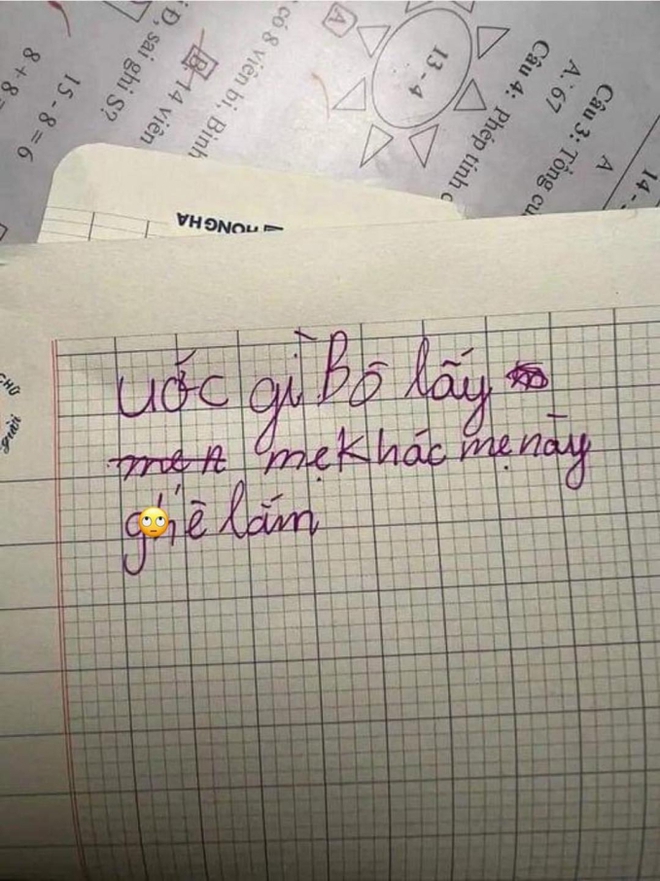 8 + 8 =
15 - 8 = 6
Đ, sai ghi S?
B. 14 viên
có 8 viên bi, Bình
A
13 - 4
Câu 4: Phép tính
A. 67
Câu 3: Tổng củ
A
14 -
HONG HA
CHỮ
người
ước gì Bố lấy
mẹ khác mẹ này
ghê lắm